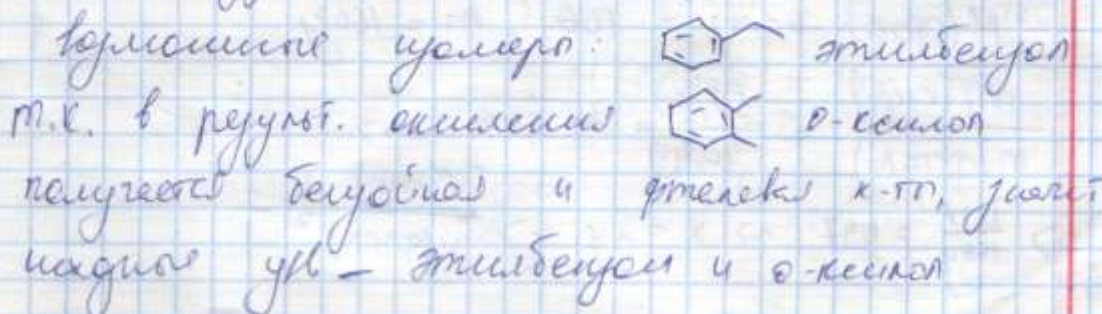 возможные изомеры: этилбензол
т.к. в результ. окисления о-ксилол
получается бензойная и фталевая к-ты, значит
исходные ув – этилбензол и о-ксилол